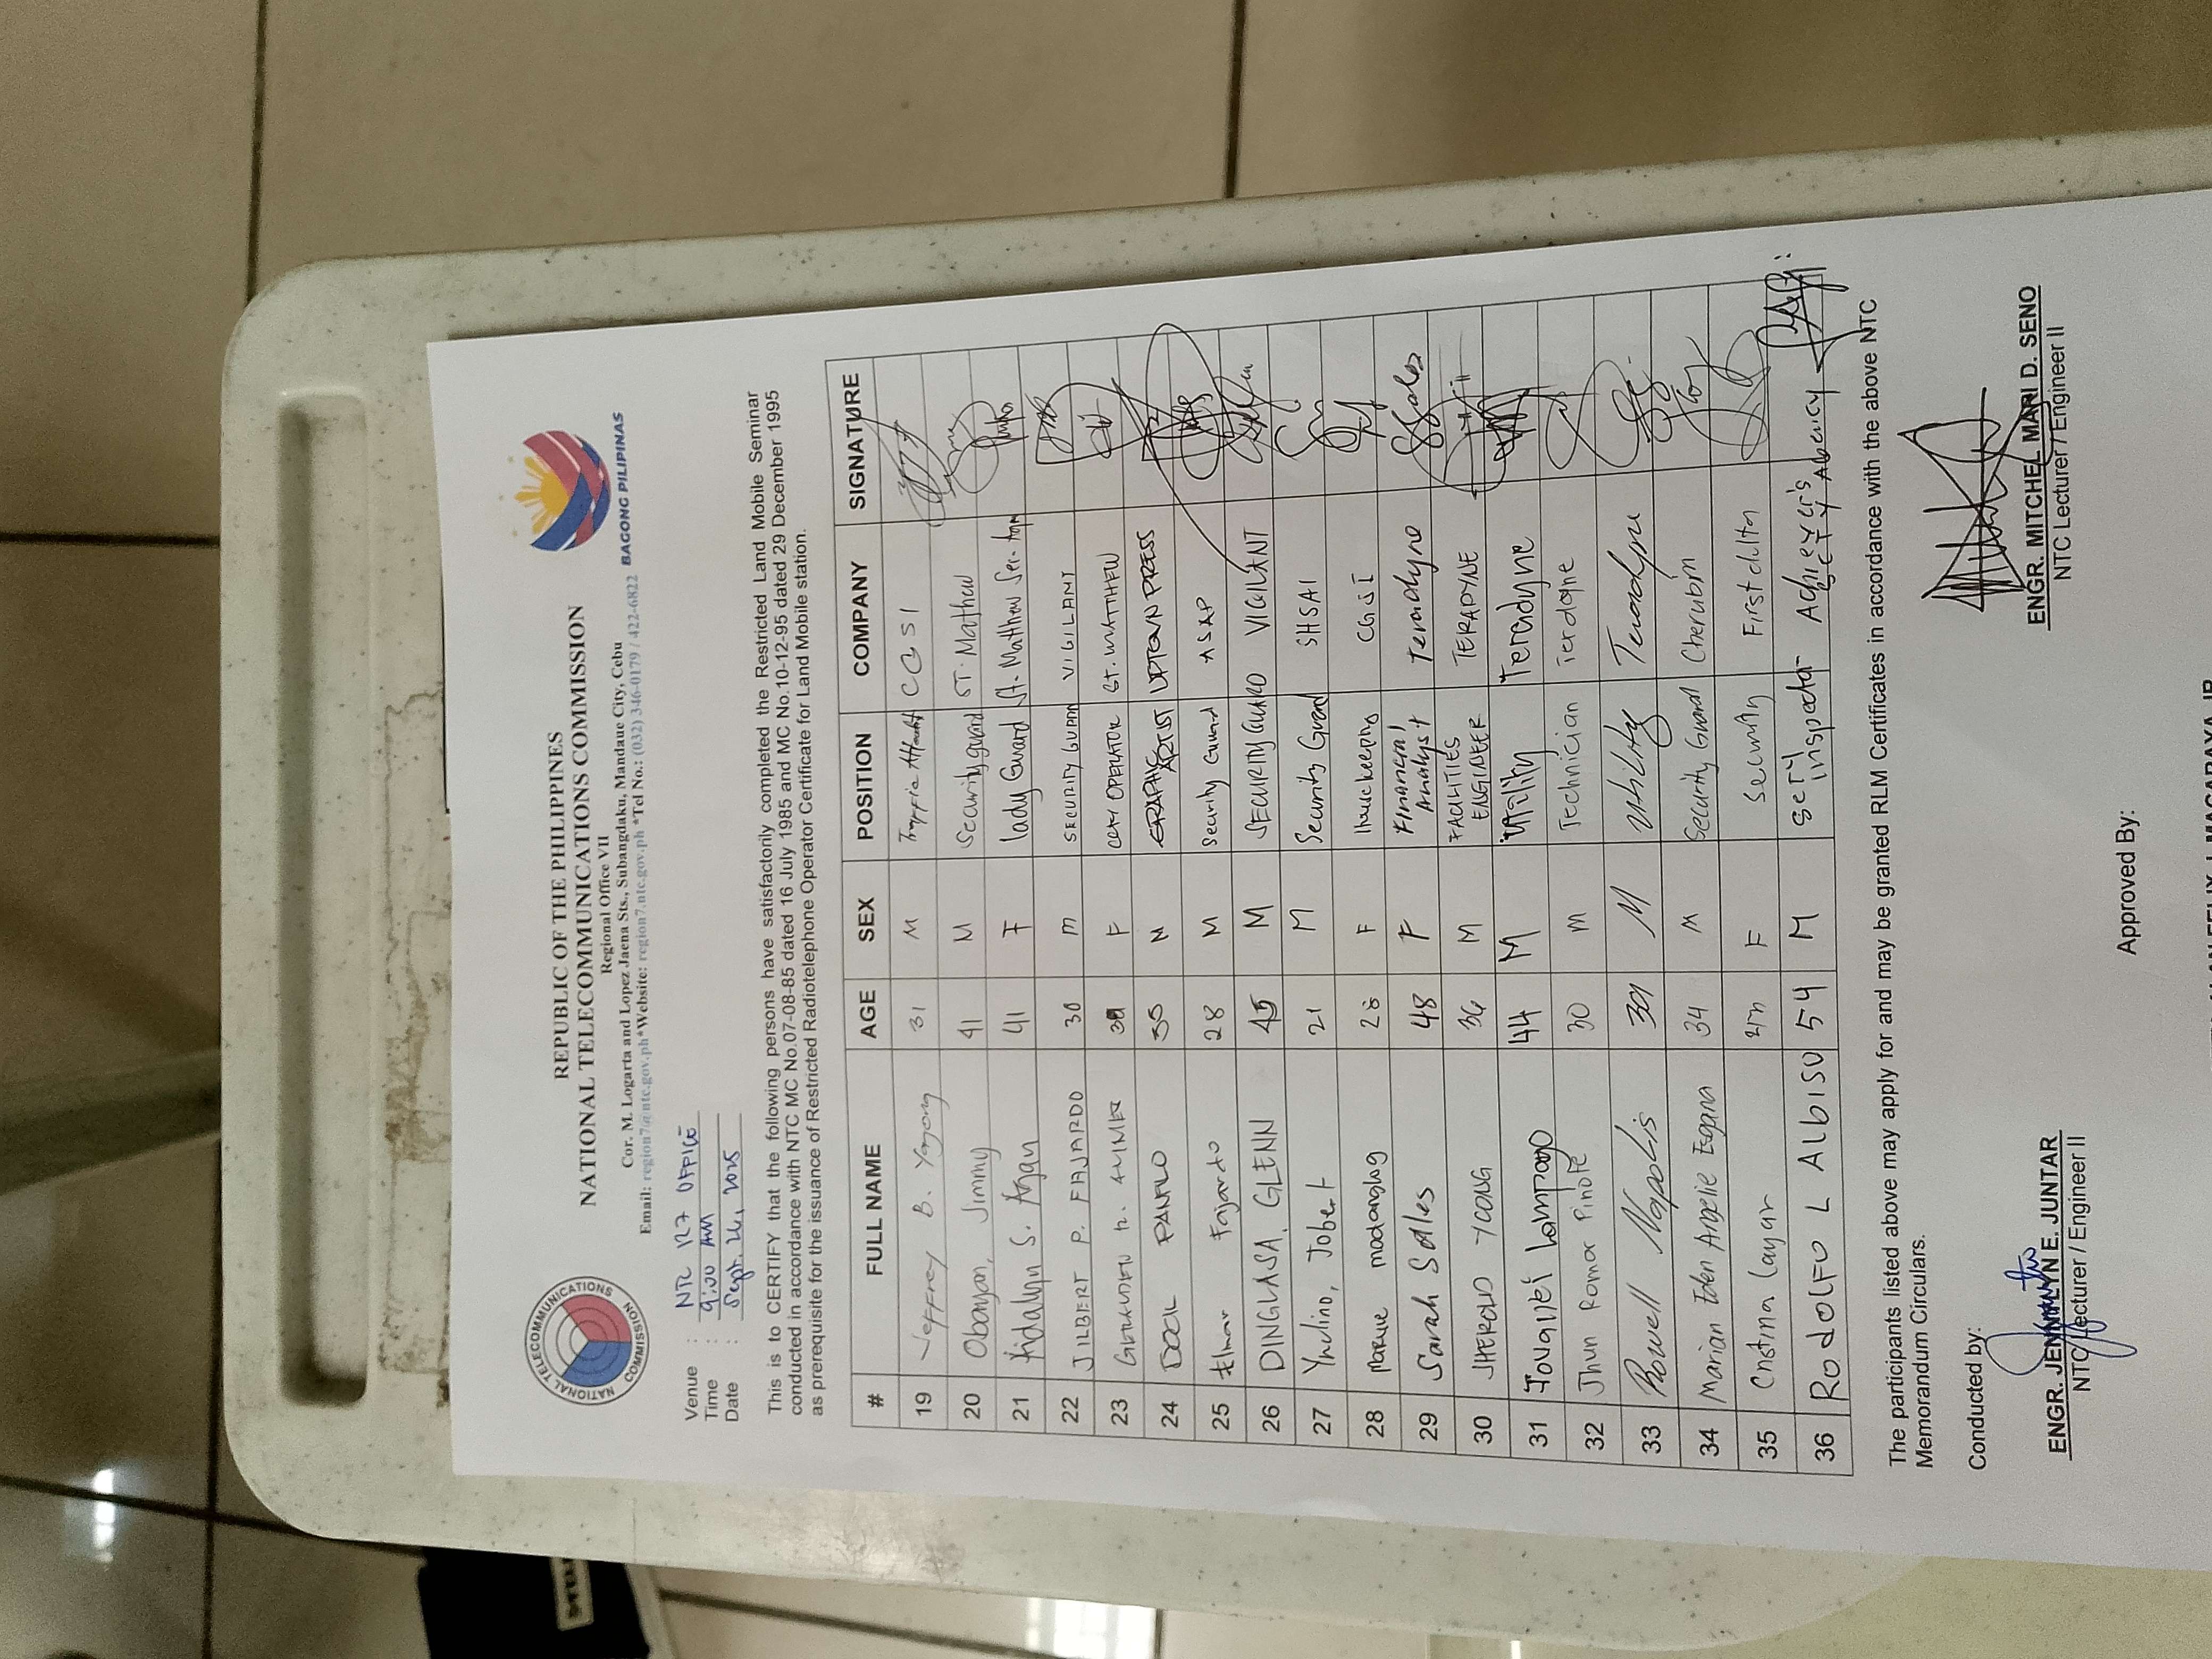 REPUBLIC OF THE PHILIPPINES
NATIONAL TELECOMMUNICATIONS COMMISSION
Regional Office VII
Cor. M. Logarta and Lopez Jaena Sts., Subangdaku, Mandaue City, Cebu
Email: region7@ntc.gov.ph*Website: region7.ntc.gov.ph *Tel No.: (032) 346-0179 / 422-6822
NATIONAL TELECOMMUNICATIONS COMMISSION
BAGONG PILIPINAS
Venue : NTC R7 OFFICE
Time : 9:00 AM
Date : Sept. 2025
This is to CERTIFY that the following persons have satisfactorily completed the Restricted Land Mobile Seminar
conducted in accordance with NTC MC No.07-08-85 dated 16 July 1985 and MC No.10-12-95 dated 29 December 1995
as prerequisite for the issuance of Restricted Radiotelephone Operator Certificate for Land Mobile station.
# FULL NAME AGE SEX POSITION COMPANY SIGNATURE
19 Jeffrey B. Yagong 31 M CGSI
20 Jimmy 41 M Security guard ST. Mathew
21 S. 41 F lady Guard St. Matthew
22 JILBERT P. FAJARDO 30 M SECURITY GUARD VIGILANT
23 F CCTV OPERATOR ST. MATTHEW
24 PANFILO 35 M GRAPHIC ARTIST UPTOWN PRESS
25 Elmar Fajardo 28 M Security Guard ASAP
26 DINGLASA, GLENN 45 M SECURITY GUARD VIGILANT
27 Yhulino, Jobert 21 M Security Guard SHSAI
28 28 F Housekeeping CGSI
29 Sarah Soles 48 F Financial Analyst Teradyne
30 JHEROLD YCONG 36 M FACILITIES ENGINEER TERADYNE
31 Lampago 44 M Utility Teradyne
32 Jhun Romar Pinote 30 M Technician Terdyne
33 Rowell Napolis 39 M Utility Teradyne
34 Marian Eden Angelie Esgana 34 M Security Guard Cherubim
35 Cristina Layar F Security First delta
36 RodolFO L Albiso 54 M Inspector Agency
The participants listed above may apply for and may be granted RLM Certificates in accordance with the above NTC
Memorandum Circulars.
Conducted by:
ENGR. JENNYLYN E. JUNTAR ENGR. MITCHEL MARI D. SENO
NTC Lecturer / Engineer II NTC Lecturer / Engineer II
Approved By: